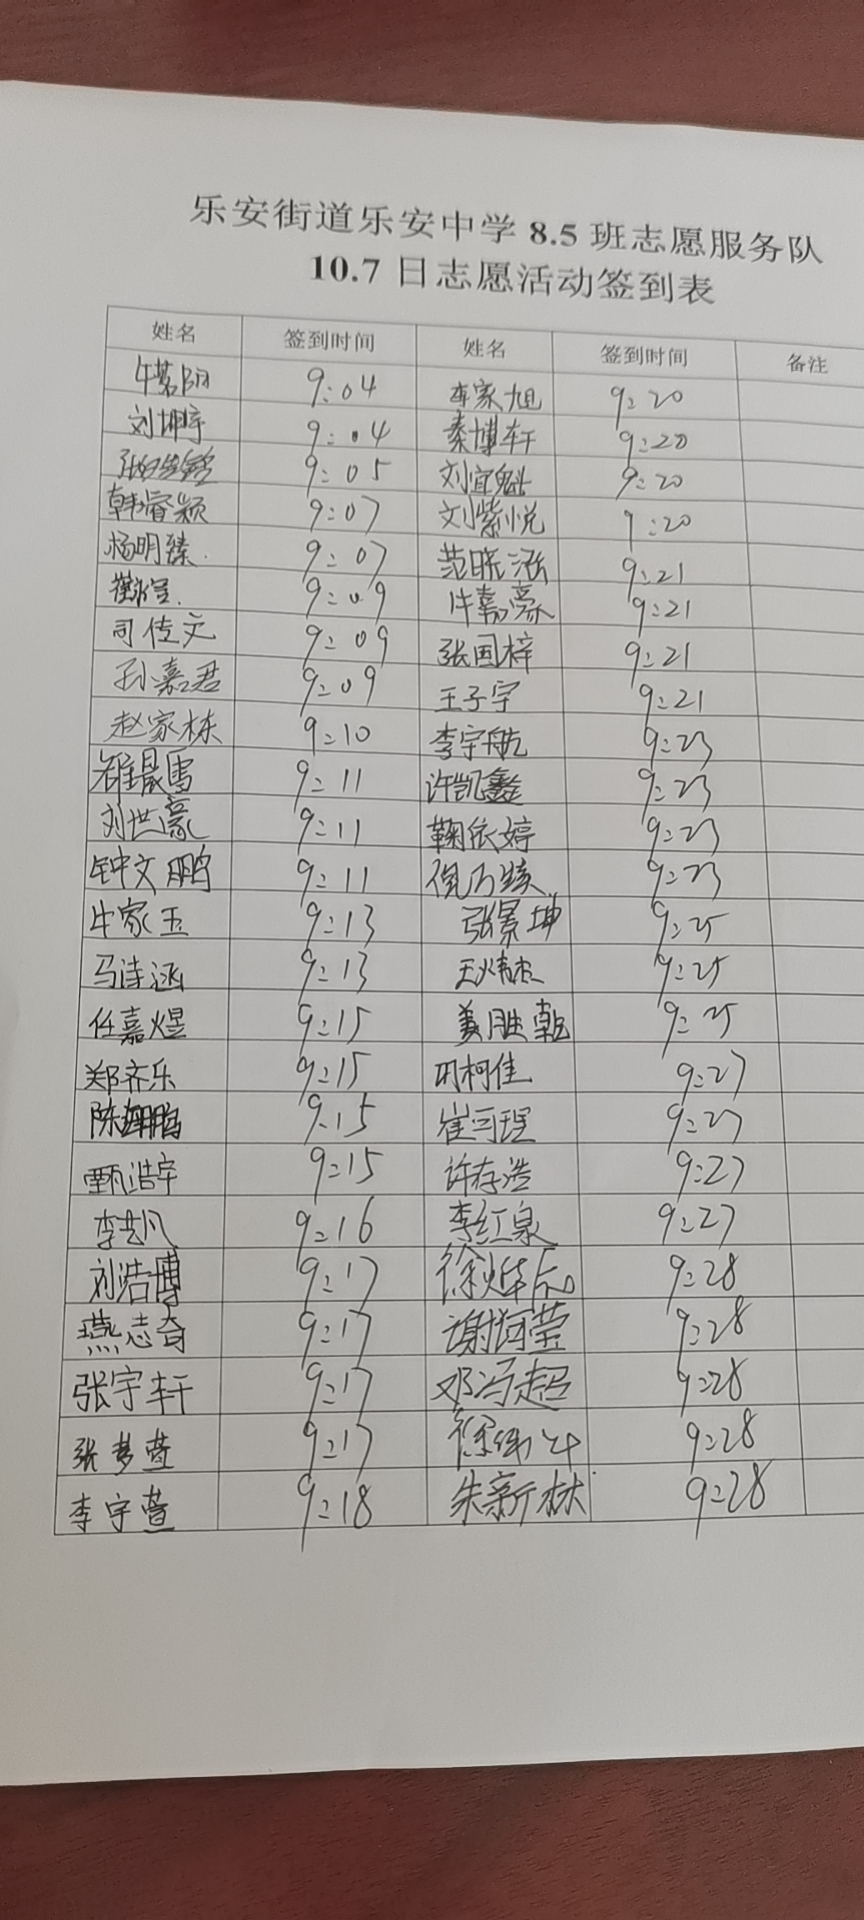 乐安街道乐安中学 8.5 班志愿服务队
10.7 日志愿活动签到表
姓名 签到时间 姓名 签到时间 备注
9:04 李家旭 9:20
刘坤宇 9:04 秦博轩 9:20
9:05 刘宜魁 9:20
韩睿颖 9:07 刘紫悦 9:20
杨明臻 9:07 范晓泓 9:21
9:09 牛嘉豪 9:21
司传文 9:09 张国梓 9:21
孙嘉君 9:09 王子宇 9:21
赵家栋 9:10 李宇航 9:23
9:11 许凯鑫 9:23
刘世豪 9:11 鞠依婷 9:23
钟文鹏 9:11 倪乃臻 9:23
牛家玉 9:13 张景坤 9:25
马诗涵 9:13 9:25
任嘉煜 9:15 姜胜乾 9:25
郑齐乐 9:15 巩柯佳 9:27
陈翔鹏 9:15 崔可珵 9:27
甄浩宇 9:15 许存浩 9:27
李艺凡 9:16 李红泉 9:27
刘浩博 9:17 9:28
燕志奇 9:17 9:28
张宇轩 9:17 邓冯超 9:28
张梦萱 9:17 9:28
李宇萱 9:18 朱新林 9:28